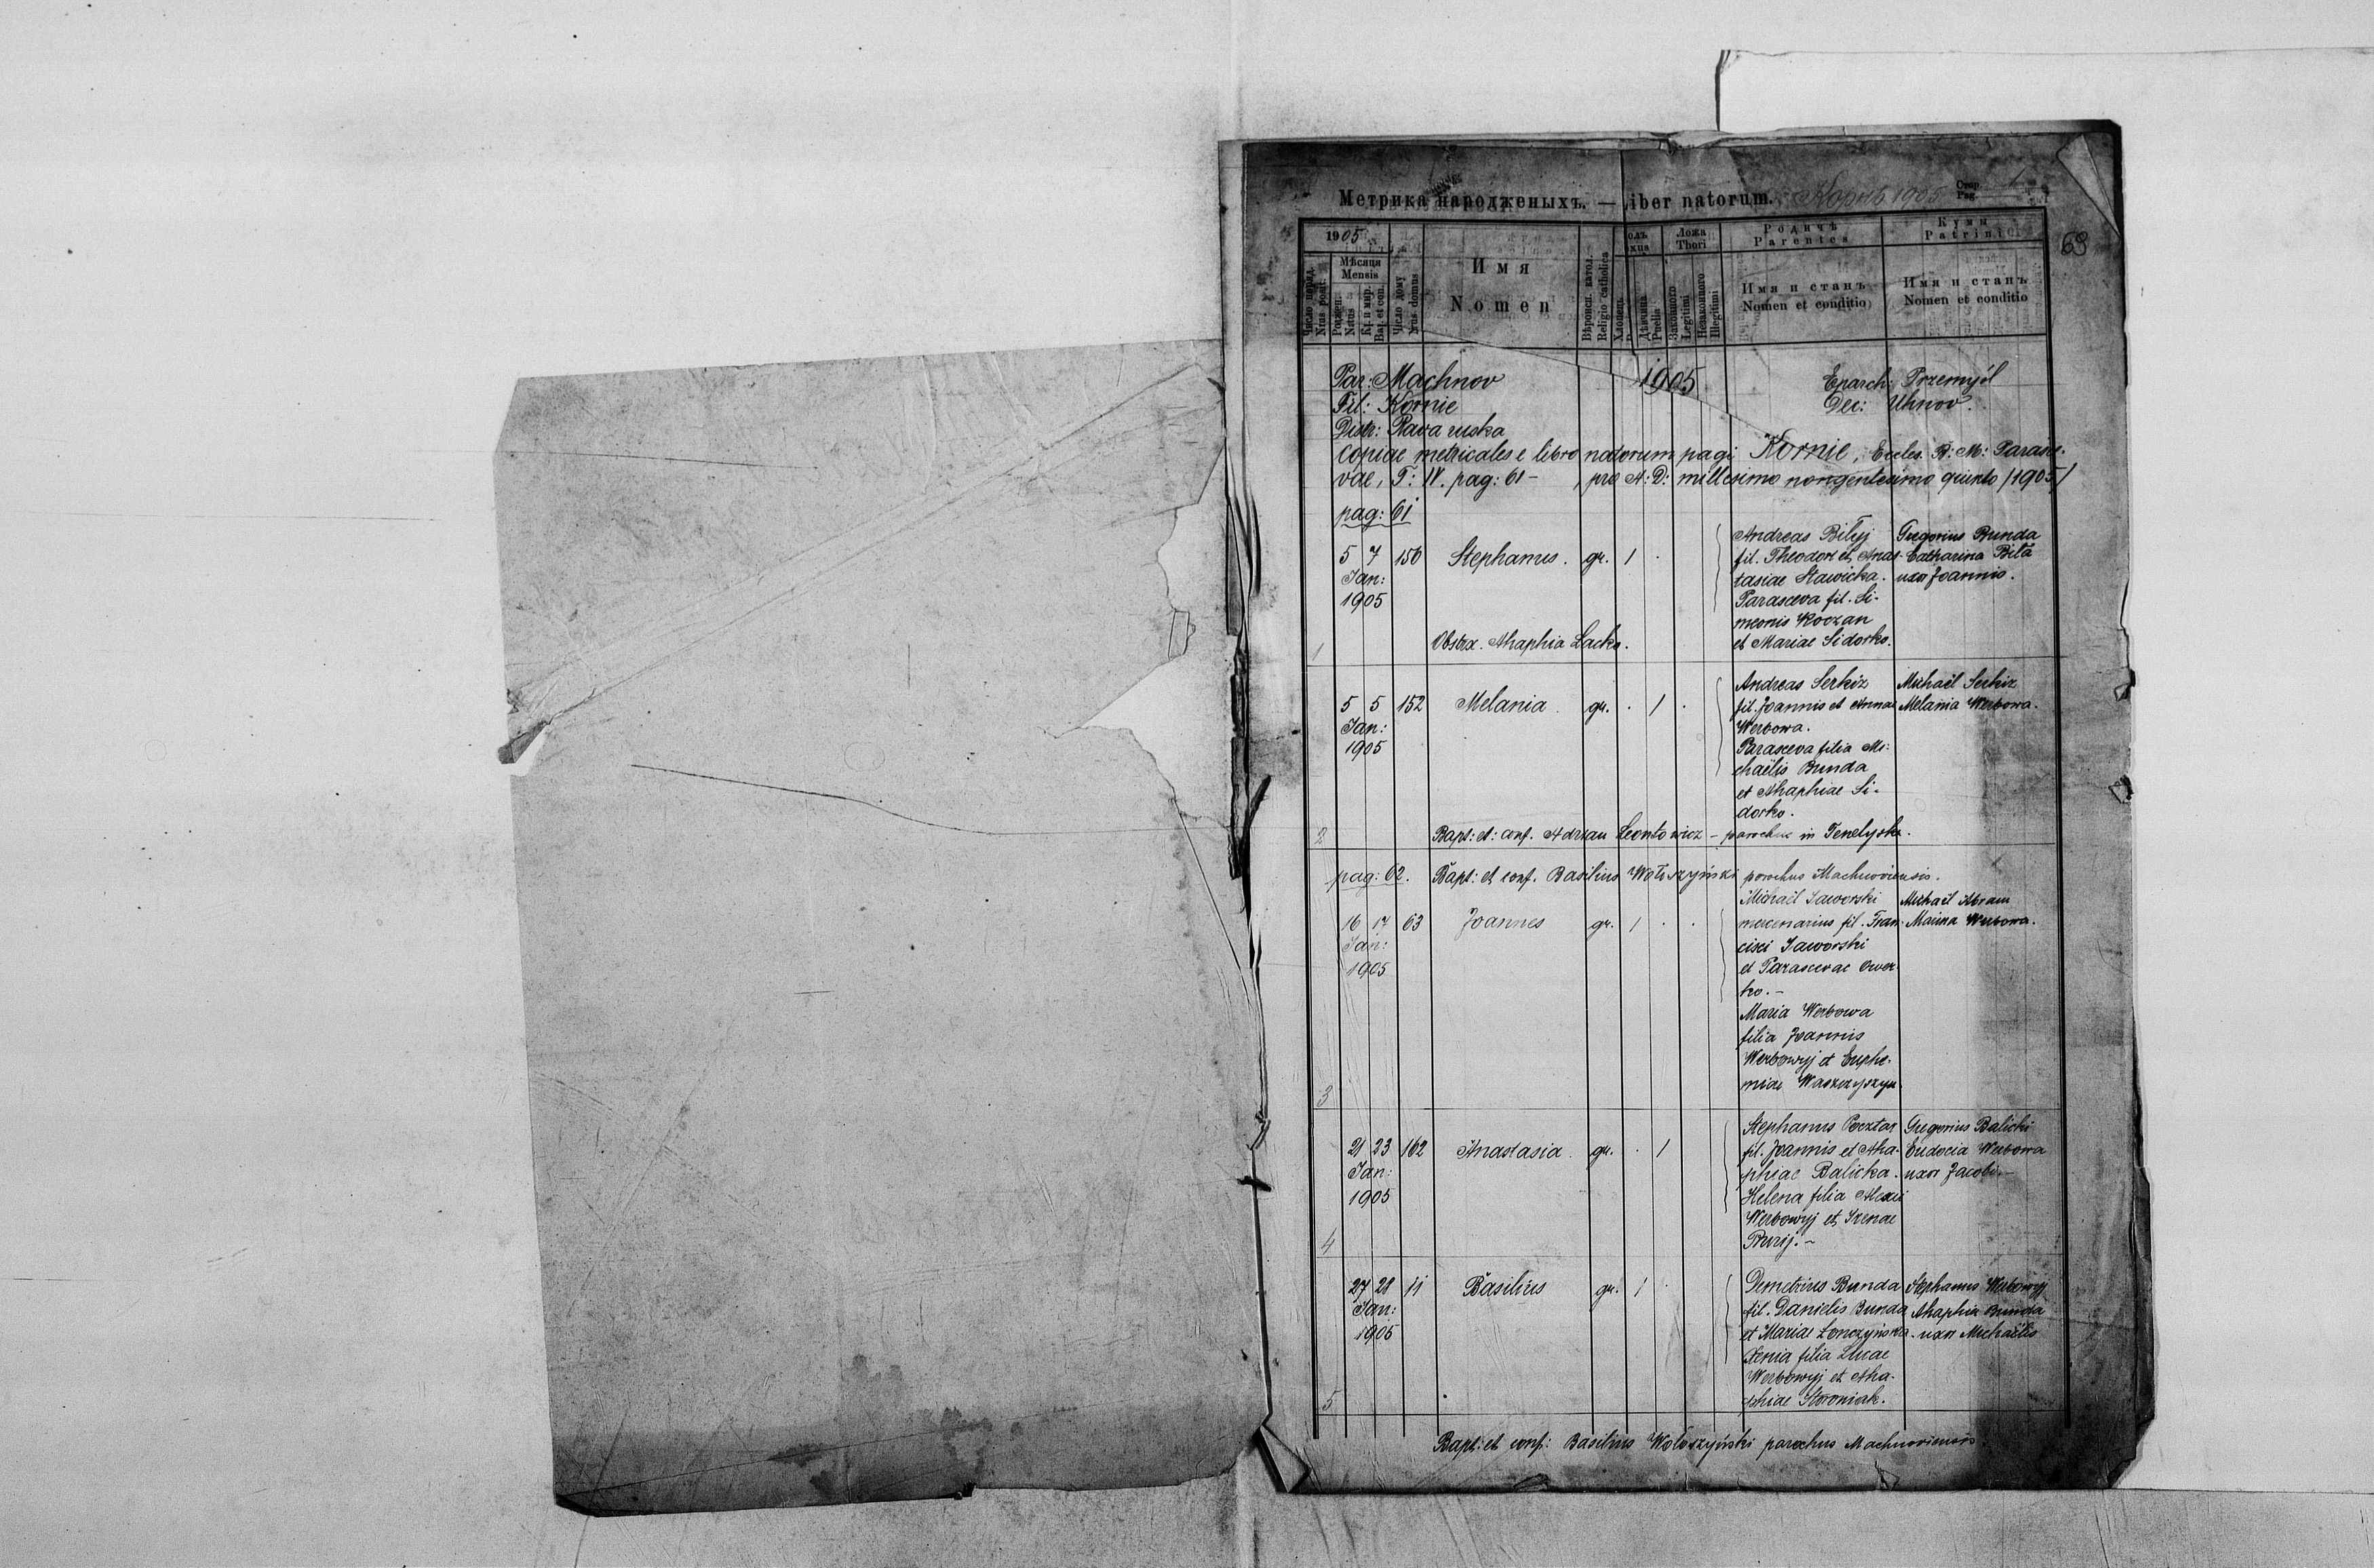 Метрика народженыхъ. — Liber natorum. Корнѣ 1905 Стор. Pag. 1
69
1905
Число поряд. Nrus posit.
Мѣсяця Mensis
Роджен. Natus
Кр. и мир. Bap. et con.
Число дому Nrus domus
Имя
Nomen
Вѣроисп. катол. Religio catholica
Хлопець
Дѣвчина Puella
Ложа Thori
Законного Legitimi
Незаконного Illegitimi
Родичѣ
Parentes
Имя и станъ
Nomen et conditio
Кумы
Patrini
Имя и станъ
Nomen et conditio
Par: Machnov 1905 Eparch: Przemyśl
Fil: Kornie Dec: Uhnov.
Distr: Rava ruska
Copiae metricales e libro natorum pagi Kornie, Eccles. B: M: Parasce-
vae, T: IV. pag: 61 – , pro A: D: millesimo nongentesimo quinto /1905/
pag: 61
Andreas Biłyj Gregorius Bunda
5 7 156 Stephanus. gr. 1 · fil. Theodori et Anas- Catharina Biła
Jan: tasiae Stawicka. uxor Joannis.
1905 Parasceva fil. Si-
meonis Koczan
1 Obstx. Ahaphia Lacko. et Mariae Sidorko.
Andreas Serkiz Michaël Serkiz
5 5 152 Melania. gr. · 1 · fil. Joannis et Annae Melania Werbowa.
Jan: Werbowa.
1905 Parasceva filia Mi-
chaëlis Bunda
et Ahaphiae Si-
dorko.
2 Bapt: et: conf. Adrian Leontowicz – parochus in
pag: 62. Bapt: et conf. Basilius Wołoszyński parochus Machnoviensis.
Michaël Jaworski Michaël Abram
16 17 63 Joannes gr. 1 · · mercenarius fil. Fran- Marina Werbowa.
Jan: cisci Jaworski
1905 et Parascevae Ower-
ko. –
Maria Werbowa
filia Joannis
Werbowyj et Euphe-
3 miae Waszczyszyn
Stephanus Pocztar Gregorius Balicki
21 23 162 Anastasia. gr. · 1 fil. Joannis et Aha- Eudocia Werbowa
Jan: phiae Balicka. uxor Jacobi. –
1905 Helena filia Alexii
Werbowyj et Irenae
4
27 28 11 Basilius gr. 1 · Demetrius Bunda Stephanus Werbowyj
Jan: fil. Danielis Bunda Ahaphia Bunda
1905 et Mariae Łonczyńska. uxor Michaëlis
Xenia filia Lucae
Werbowyj et Aha-
5 phiae Storoniak.
Bapt: et conf: Basilius Wołoszyński parochus Machnoviensis.